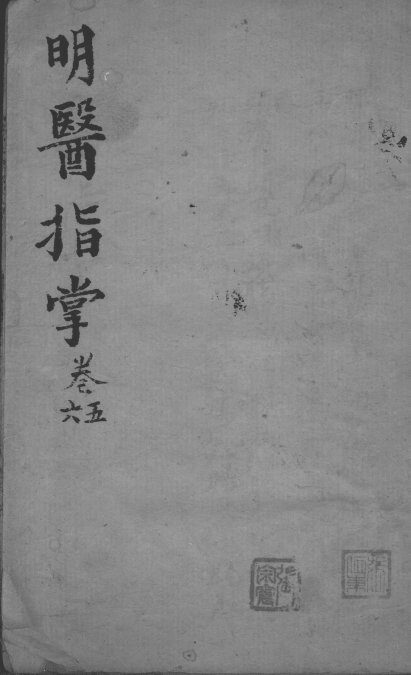 明醫指掌
卷
五六